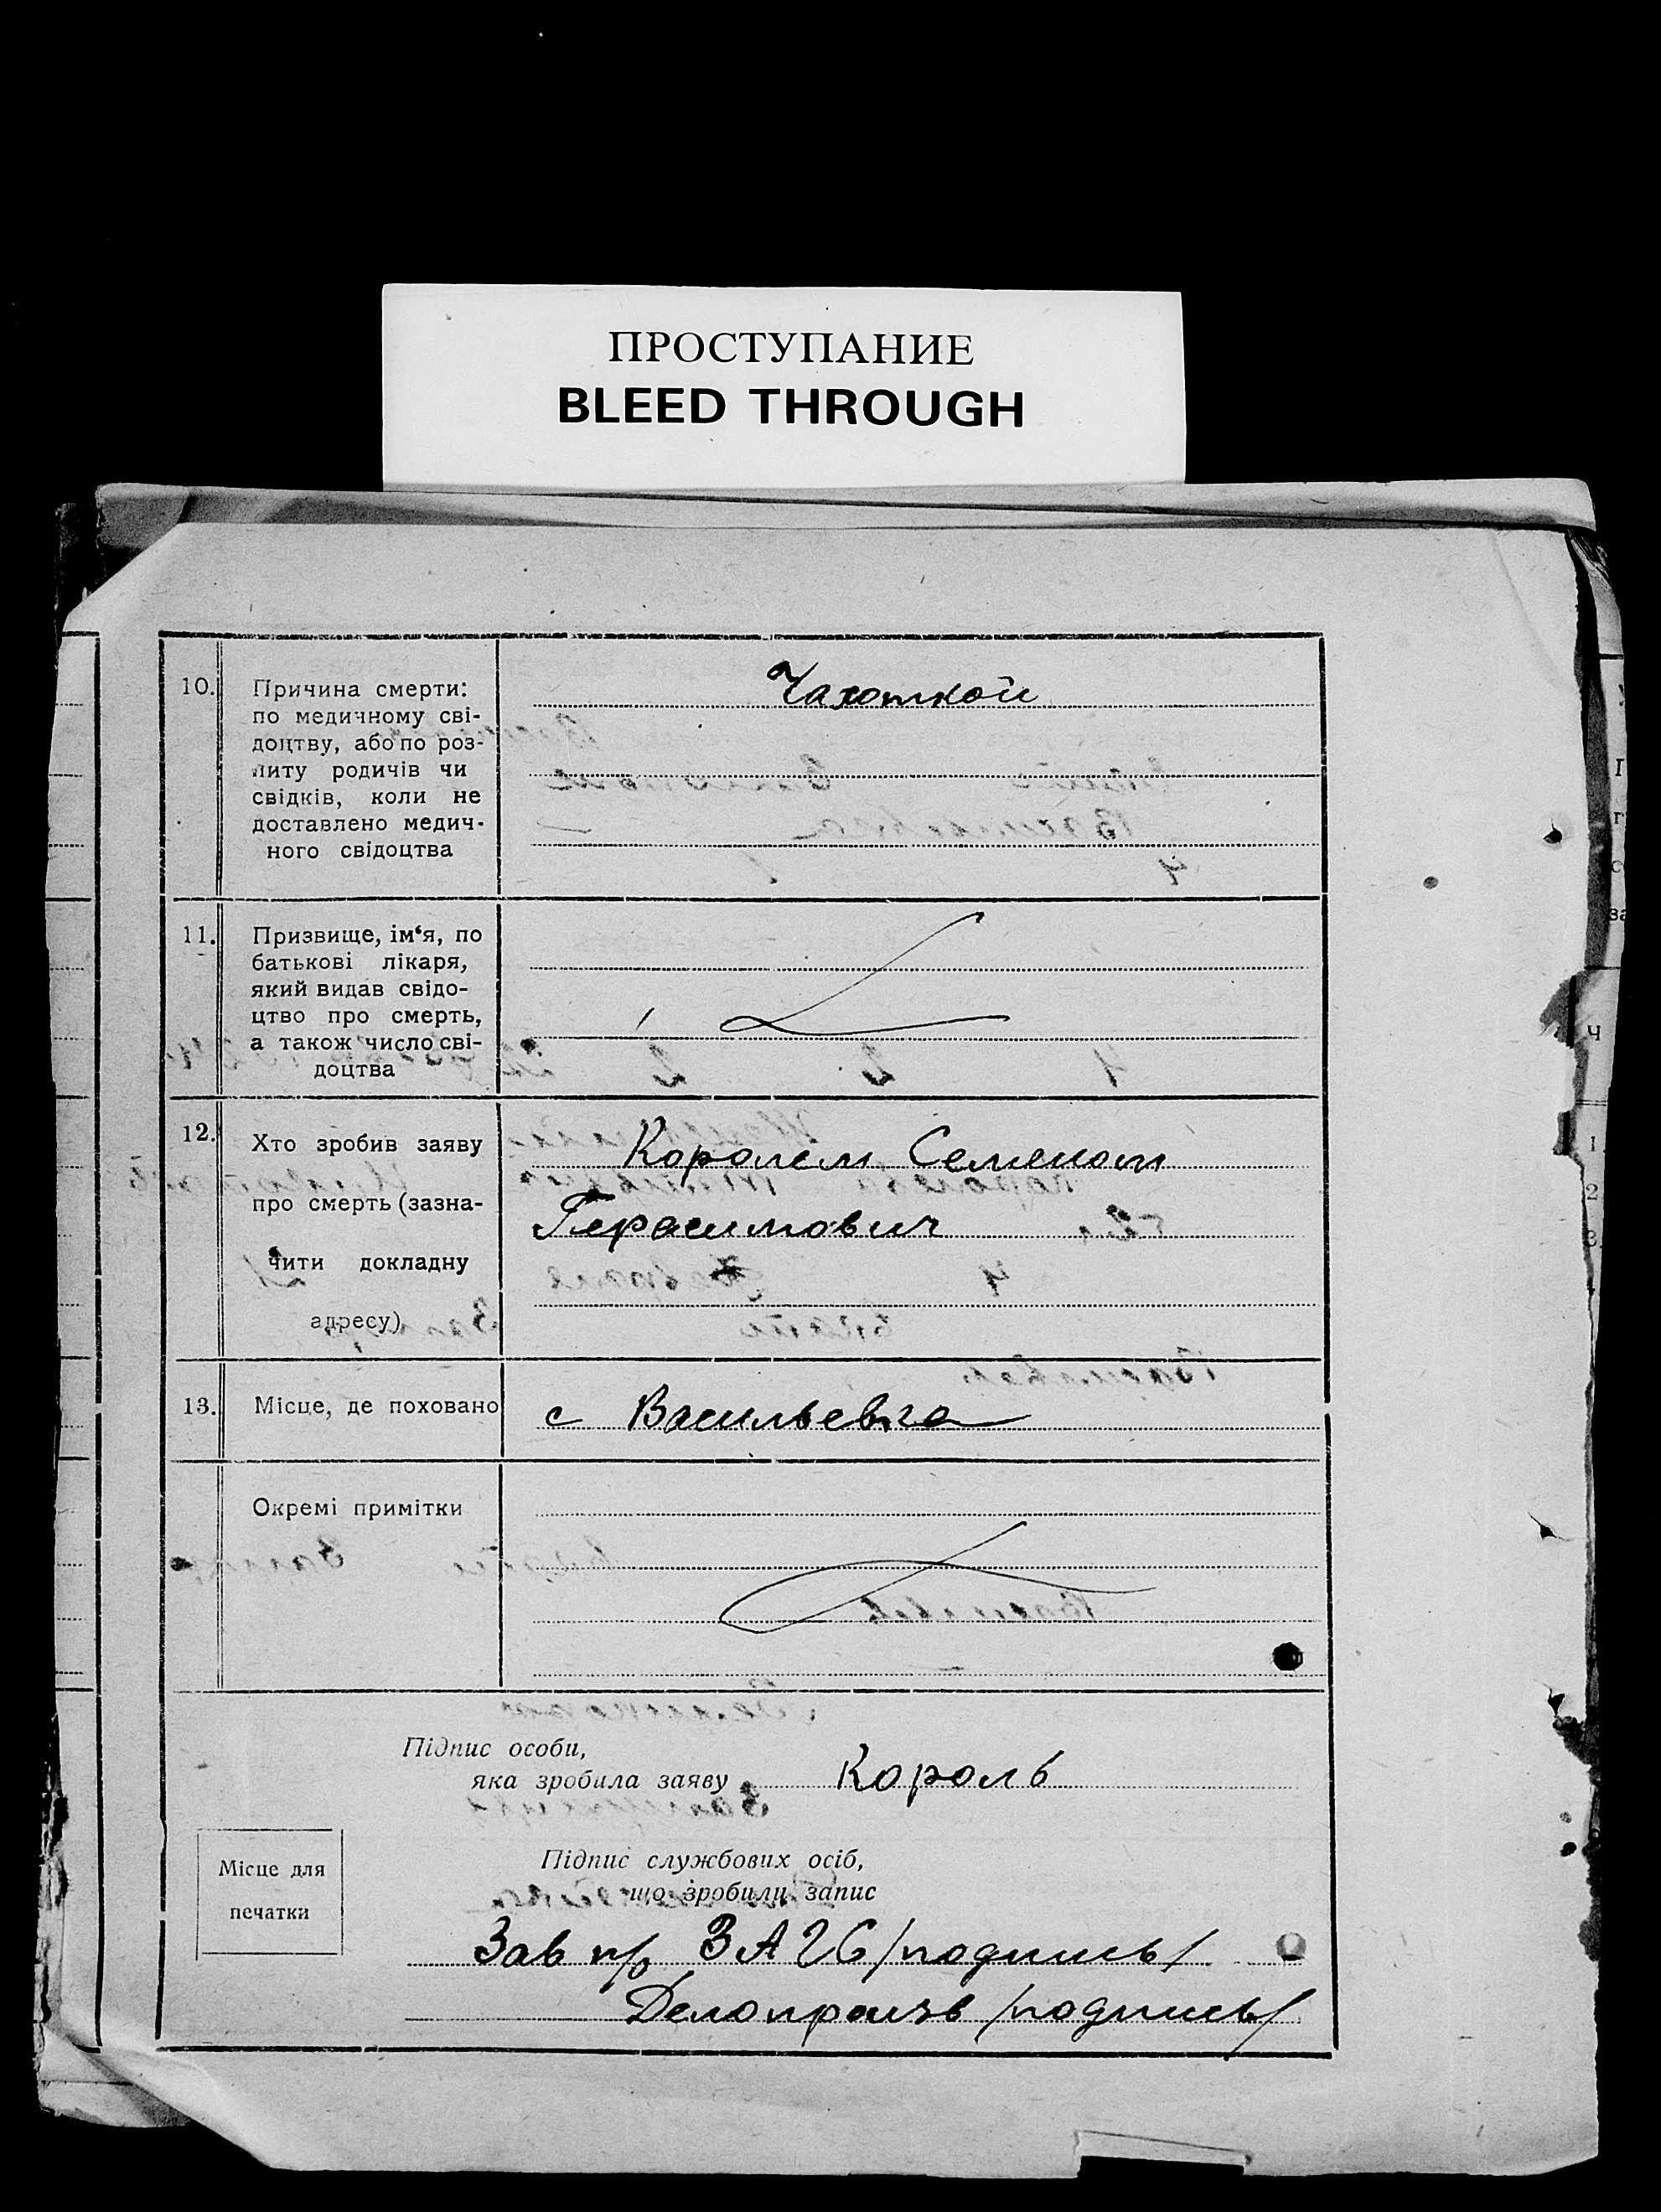 ПРОСТУПАНИЕ
BLEED THROUGH
10. Причина смерти: Чахоткой
по медичному сві-
доцтву, або по роз-
питу родичів чи
свідків, коли не
доставлено медич-
ного свідоцтва
11. Призвище, ім‘я, по
батькові лікаря,
який видав свідо-
цтво про смерть,
а також число сві-
доцтва
12. Хто зробив заяву Королем Семеном
про смерть (зазна- Герасимович
чити докладну
адресу)
13. Місце, де поховано с Васильевка
Окремі примітки
Підпис особи,
яка зробила заяву Король
Підпис службових осіб,
що зробили запис
Місце для
печатки
Зав п/о ЗАГС /подпись/
Делопроизв /подпись/